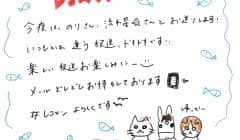 今夜は、のりさん、流れ星☆さんとお送りします!
いつもとは違う放送、ドキドキです。
楽しい放送お楽しみにー
メールどしどしお待ちしております
#レコメン よろしくです